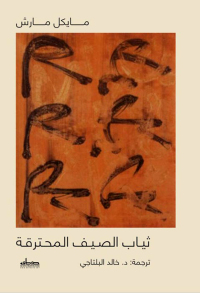 مــايـكـل مــارش
ثياب الصيف المحترقة
ترجمة: د. خالد البلتاجي